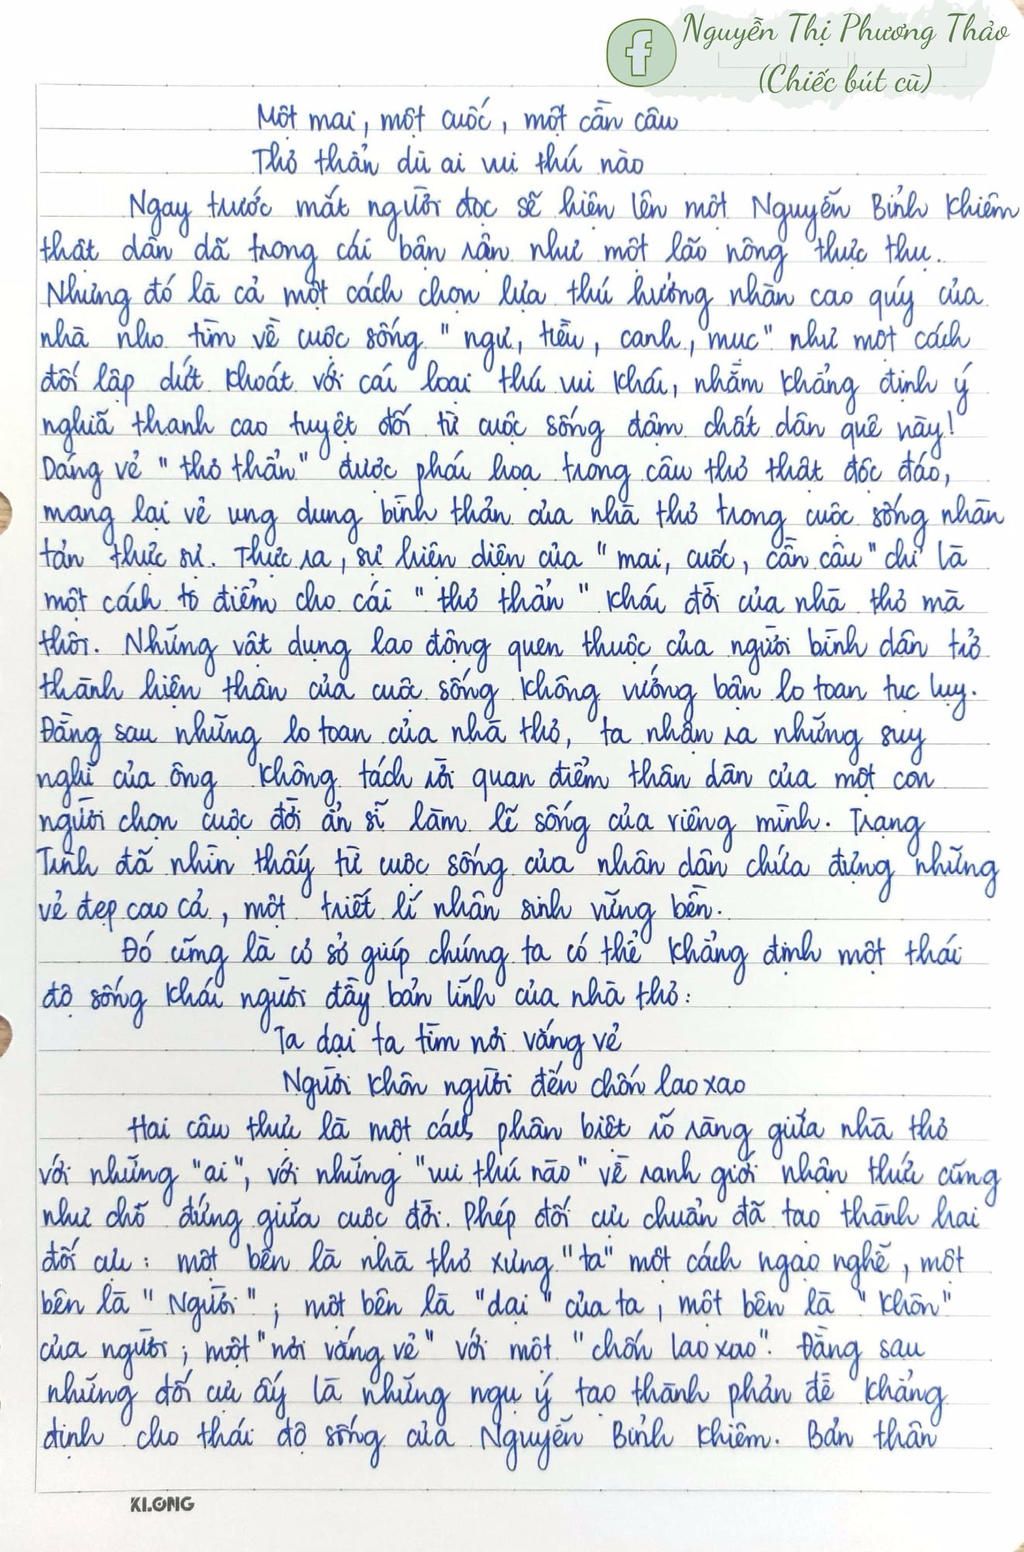 Nguyễn Thị Phương Thảo
(Chiếc bút cũ)
Một mai, một cuốc, một cần câu
Thơ thẩn dù ai vui thú nào
Ngay trước mắt người đọc sẽ hiện lên một Nguyễn Bỉnh Khiêm
thật dân dã trong cái bận rộn như một lão nông thực thụ.
Nhưng đó là cả một cách chọn lựa thú hưởng nhàn cao quý của
nhà nho tìm về cuộc sống "ngư, tiều, canh, mục" như một cách
đối lập dứt khoát với các loại thú vui khác, nhằm khẳng định ý
nghĩa thanh cao tuyệt đối từ cuộc sống đậm chất dân quê này!
Dáng vẻ "thơ thẩn" được phác họa trong câu thơ thật độc đáo,
mang lại vẻ ung dung bình thản của nhà thơ trong cuộc sống nhàn
tản thực sự. Thực ra, sự hiện diện của "mai, cuốc, cần câu" chỉ là
một cách tô điểm cho cái "thơ thẩn" khác đời của nhà thơ mà
thôi. Những vật dụng lao động quen thuộc của người bình dân trở
thành hiện thân của cuộc sống không vướng bận lo toan tục lụy.
Đằng sau những lo toan của nhà thơ, ta nhận ra những suy
nghĩ của ông không tách rời quan điểm thân dân của một con
người chọn cuộc đời ẩn sĩ làm lẽ sống của riêng mình. Trạng
Trình đã nhìn thấy từ cuộc sống của nhân dân chứa đựng những
vẻ đẹp cao cả, một triết lí nhân sinh vững bền.
Đó cũng là cơ sở giúp chúng ta có thể khẳng định một thái
độ sống khác người đầy bản lĩnh của nhà thơ:
Ta dại ta tìm nơi vắng vẻ
Người khôn người đến chốn lao xao
Hai câu thực là một cách phân biệt rõ ràng giữa nhà thơ
với những "ai", với những "vui thú nào" về ranh giới nhận thức cũng
như chỗ đứng giữa cuộc đời. Phép đối cực chuẩn đã tạo thành hai
đối cực: một bên là nhà thơ xưng "ta" một cách ngạo nghễ, một
bên là "Người"; một bên là "dại" của ta, một bên là "khôn"
của người; một "nơi vắng vẻ" với một "chốn lao xao". Đằng sau
những đối cực ấy là những ngụ ý tạo thành phản đề khẳng
định cho thái độ sống của Nguyễn Bỉnh Khiêm. Bản thân
KLONG